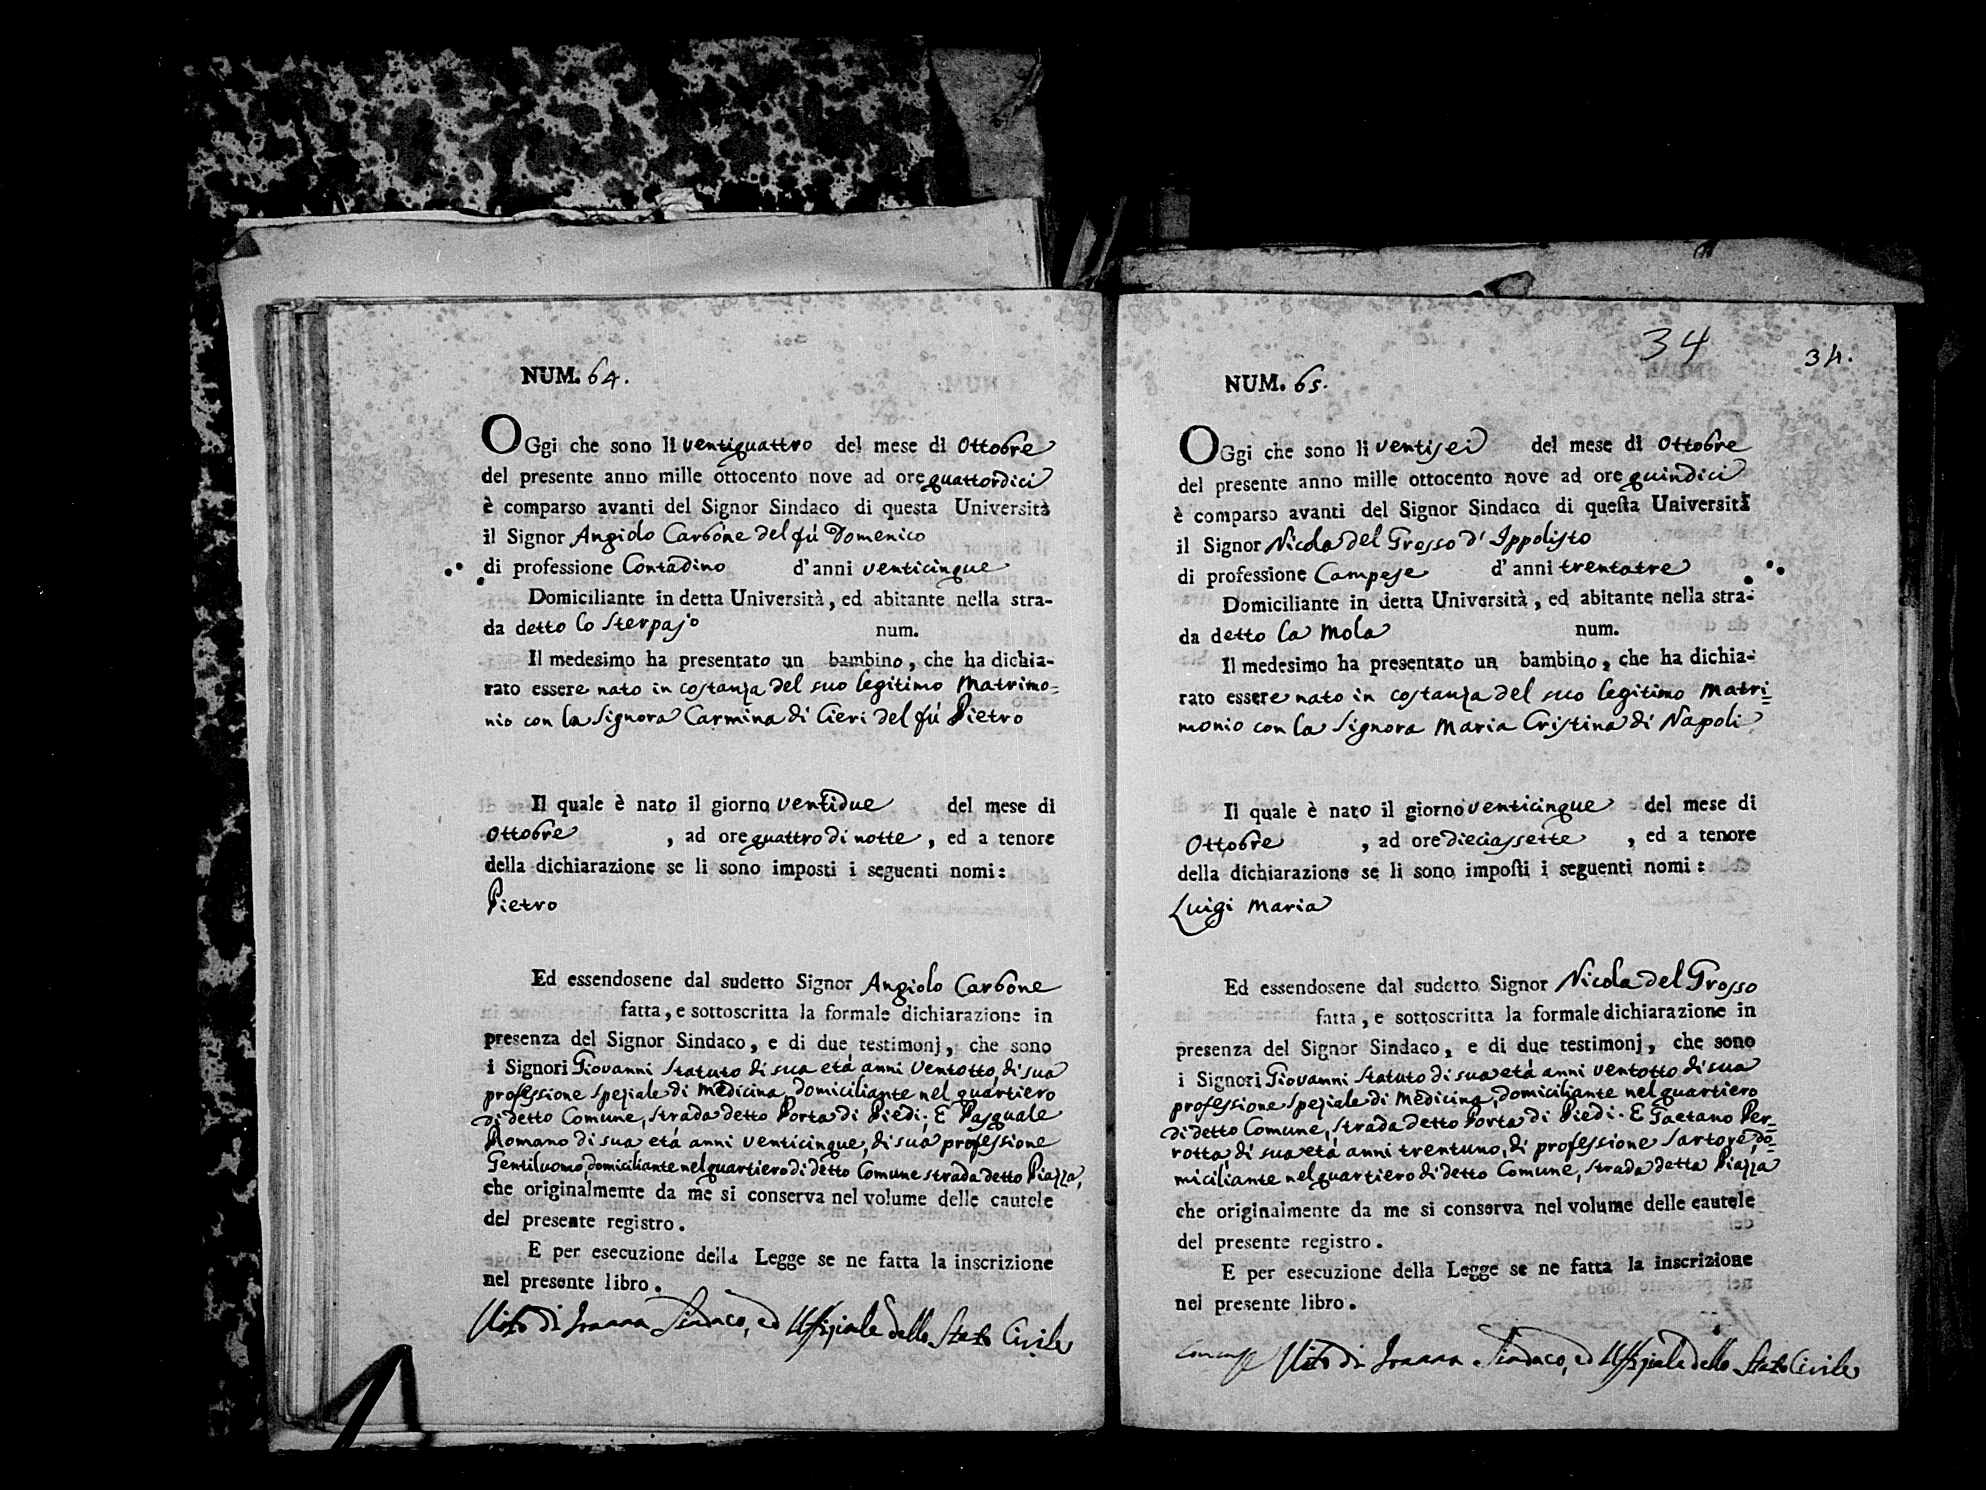 NUM. 64.
OGgi che sono li ventiquattro del mese di Ottobre
del presente anno mille ottocento nove ad ore quattordici
è comparso avanti del Signor Sindaco di questa Università
il Signor Angiolo Carbone del fú Domenico
di professione Contadino d'anni venticinque
Domiciliante in detta Università, ed abitante nella stra-
da detto lo Sterpajo num.
Il medesimo ha presentato un bambino, che ha dichia-
rato essere nato in costanza del suo legitimo Matrimo=
nio con la Signora Carmina di Cieri del fú Pietro
Il quale è nato il giorno ventidue del mese di
Ottobre , ad ore quattro di notte , ed a tenore
della dichiarazione se li sono imposti i seguenti nomi:
Pietro
Ed essendosene dal sudetto Signor Angiolo Carbone
fatta, e sottoscritta la formale dichiarazione in
presenza del Signor Sindaco, e di due testimonj, che sono
i Signori Giovanni Statuto di sua etá anni Ventotto, di sua
professione Speziale di Medicina, domiciliante nel quartiero
di detto Comune, strada detto Porta di Piedi; E Pasquale
Romano di sua etá anni venticinque, di sua professione
Gentiluomo, domiciliante nel quartiero di detto Comune strada detto Piazza,
che originalmente da me si conserva nel volume delle cautele
del presente registro.
E per esecuzione della Legge se ne fatta la inscrizione
nel presente libro.
Vito di Ioanna Sindaco, ed Uffiziale dello Stato Civile
34
34.
NUM. 65.
OGgi che sono li ventisei del mese di Ottobre
del presente anno mille ottocento nove ad ore quindici
è comparso avanti del Signor Sindaco di questa Università
il Signor Nicola del Grosso d'Ippolisto
di professione Campese d'anni trentatre
Domiciliante in detta Università, ed abitante nella stra-
da detto la Mola num.
Il medesimo ha presentato un bambino, che ha dichia-
rato essere nato in costanza del suo legitimo Matri=
monio con la Signora Maria Cristina di Napoli
Il quale è nato il giorno venticinque del mese di
Ottobre , ad ore dieciassette , ed a tenore
della dichiarazione se li sono imposti i seguenti nomi:
Luigi Maria
Ed essendosene dal sudetto Signor Nicola del Grosso
fatta, e sottoscritta la formale dichiarazione in
presenza del Signor Sindaco, e di due testimonj, che sono
i Signori Giovanni Statuto di sua etá anni ventotto di sua
professione Speziale di Medicina, domiciliante nel quartiero
di detto Comune, strada detto Porta di Piedi. E Gaetano Per=
rotta di sua etá anni trentuno, di professione Sartore, do=
miciliante nel quartiero di detto Comune, strada detta Piazza
che originalmente da me si conserva nel volume delle cautele
del presente registro.
E per esecuzione della Legge se ne fatta la inscrizione
nel presente libro.
Vito di Ioanna Sindaco, ed Uffiziale dello Stato Civile